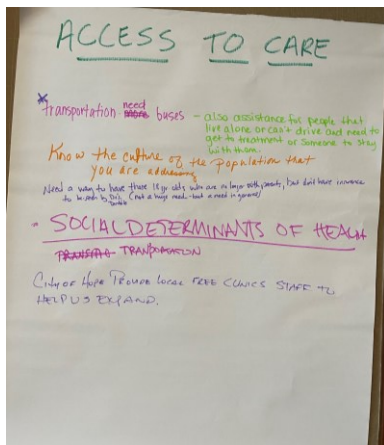 ACCESS TO CARE
*Transportation need buses - also assistance for people that
live alone or can't drive and need to
get to treatment or someone to stay
with them.
Know the culture of the population that
you are addressing
Need a way to have those 18 yr olds who are no longer with parents, but don't have insurance
to be seen by (not a huge need - but a need in general)
- SOCIAL DETERMINANTS OF HEALTH
TRANSPORTATION
City of Hope Provide Local FREE CLINICS STAFF to
HELP US EXPAND.